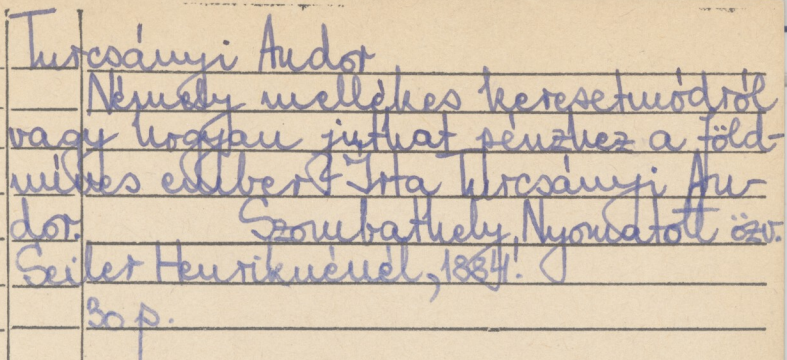 Turcsányi Andor
Némely mellékes keresetmódról
vagy hogyan juthat pénzhez a föld-
míves ember? Irta Turcsányi An-
dor. Szombathely, Nyomatott özv.
Seiler Henriknénél, 1884.
30 p.